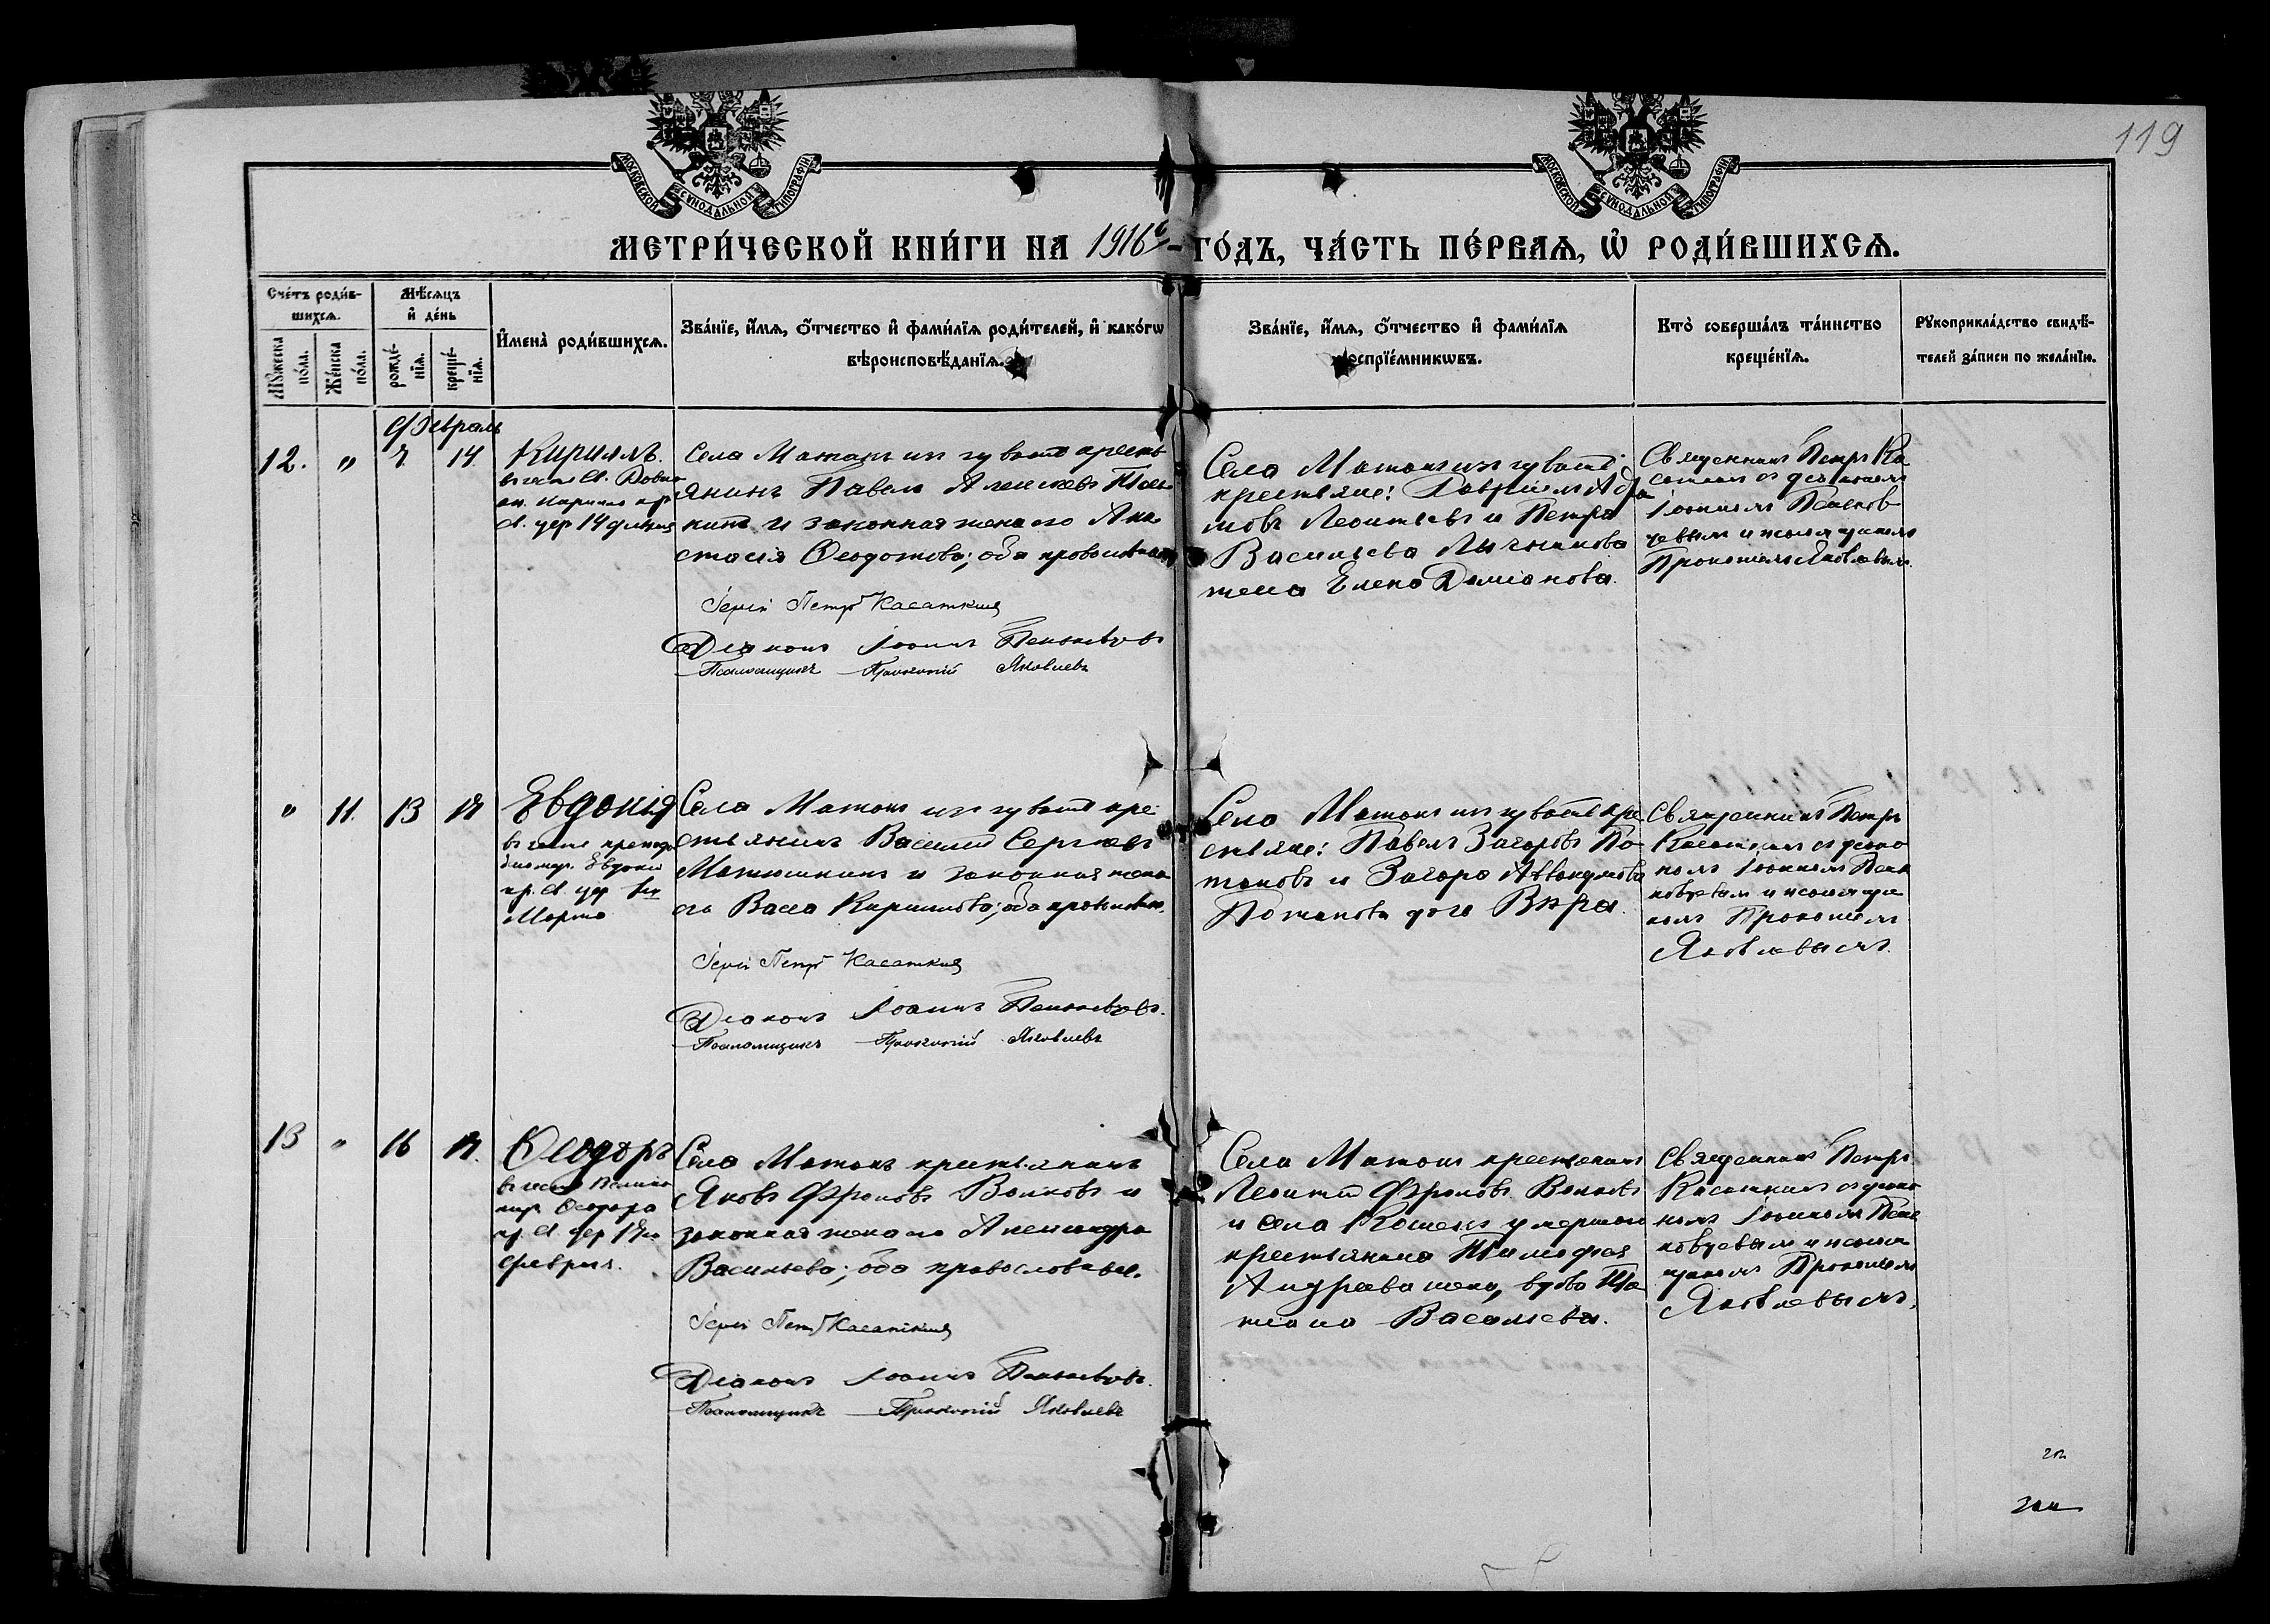 119
МОСКОВСКОЙ СѴНОДАЛЬНОЙ ТИПОГРАФІИ
МОСКОВСКОЙ СѴНОДАЛЬНОЙ ТИПОГРАФІИ
МЕТРИ́ЧЕСКОЙ КНИ́ГИ НА 1916й ГО́ДЪ, ЧА́СТЬ ПЕ́РВАѦ, Ѡ҆ РОДИ́ВШИХСѦ.
Сче́тъ роди́в-
шихсѧ.
Мѣ́сѧцъ
и҆ де́нь
Мꙋ́жеска
по́ла.
Же́нска
по́ла.
рожде́-
нїѧ.
креще́-
нїѧ.
И҆мена̀ роди́вшихсѧ.
Зва́нїе, и҆́мѧ, ѻ҆́тчество и҆ фами́лїѧ роди́телей, и҆ како́гѡ
вѣроисповѣ́данїѧ.
Зва́нїе, и҆́мѧ, ѻ҆́тчество и҆ фами́лїѧ
воспрїе́мникѡвъ.
Кто̀ соверша́лъ та́инство
креще́нїѧ.
Рꙋкоприкла́дство свидѣ́-
телей за́писи по жела́нїю.
Февраль
12. " 7. 14.
Кириллъ.
въ честь св.
ап. Кирилла пр.
св. цер 14 февраля
Села Матакъ изъ чувашъ кресть
янинъ Павелъ Алексѣевъ
и законная жена его Ана
стасія Ѳеодотова; оба православные
Іерей Петръ Касаткинъ
Діаконъ Іоаннъ
Псаломщикъ Прокопій Яковлевъ
Села Матакъ изъ чувашъ
крестьяне: Гавріилъ Ада
мовъ Леонтьевъ и Петра
Васильева
жена Елена Даміанова.
Священникъ Петръ Ка
саткинъ съ діакономъ
Іоанномъ
и псаломщикомъ
Прокопіемъ Яковлевымъ.
" 11. 13 17
Евдокія
въ честь препод
муч. Евдокіи
пр. св. цер 1го
Марта
Села Матакъ изъ чувашъ кре
стьянинъ Василій Сергѣевъ
Матюшкинъ и законная жена
его Васса Кириллова; оба православные.
Іерей Петръ Касаткинъ
Діаконъ Іоаннъ
Псаломщикъ Прокопій Яковлевъ
Села Матакъ изъ чувашъ кре
стьяне: Павелъ Захаровъ По
таповъ и Захара Аввакумова
Потапова дочь Вѣра.
Священникъ Петръ
Касаткинъ съ діако
номъ Іоанномъ
и псаломщи
комъ Прокопіемъ
Яковлевымъ.
13 " 16 17.
Ѳеодоръ
въ честь Велико
муч. Ѳеодора
пр св. цер 17го
февраля.
Села Матакъ крестьянинъ
Яковъ Фроловъ Волковъ и
законная жена его Александра
Васильева; оба православные.
Іерей Петръ Касаткинъ
Діаконъ Іоаннъ
Псаломщикъ Прокопій Яковлевъ
Села Матакъ крестьянинъ
Леонтій Фроловъ Волковъ
и села умершаго
крестьянина Тимофея
Андреева жена, вдова Та
тіана Васильева.
Священникъ Петръ
Касаткинъ съ діако
номъ Іоанномъ
и псалом
щикомъ Прокопіемъ
Яковлевымъ.